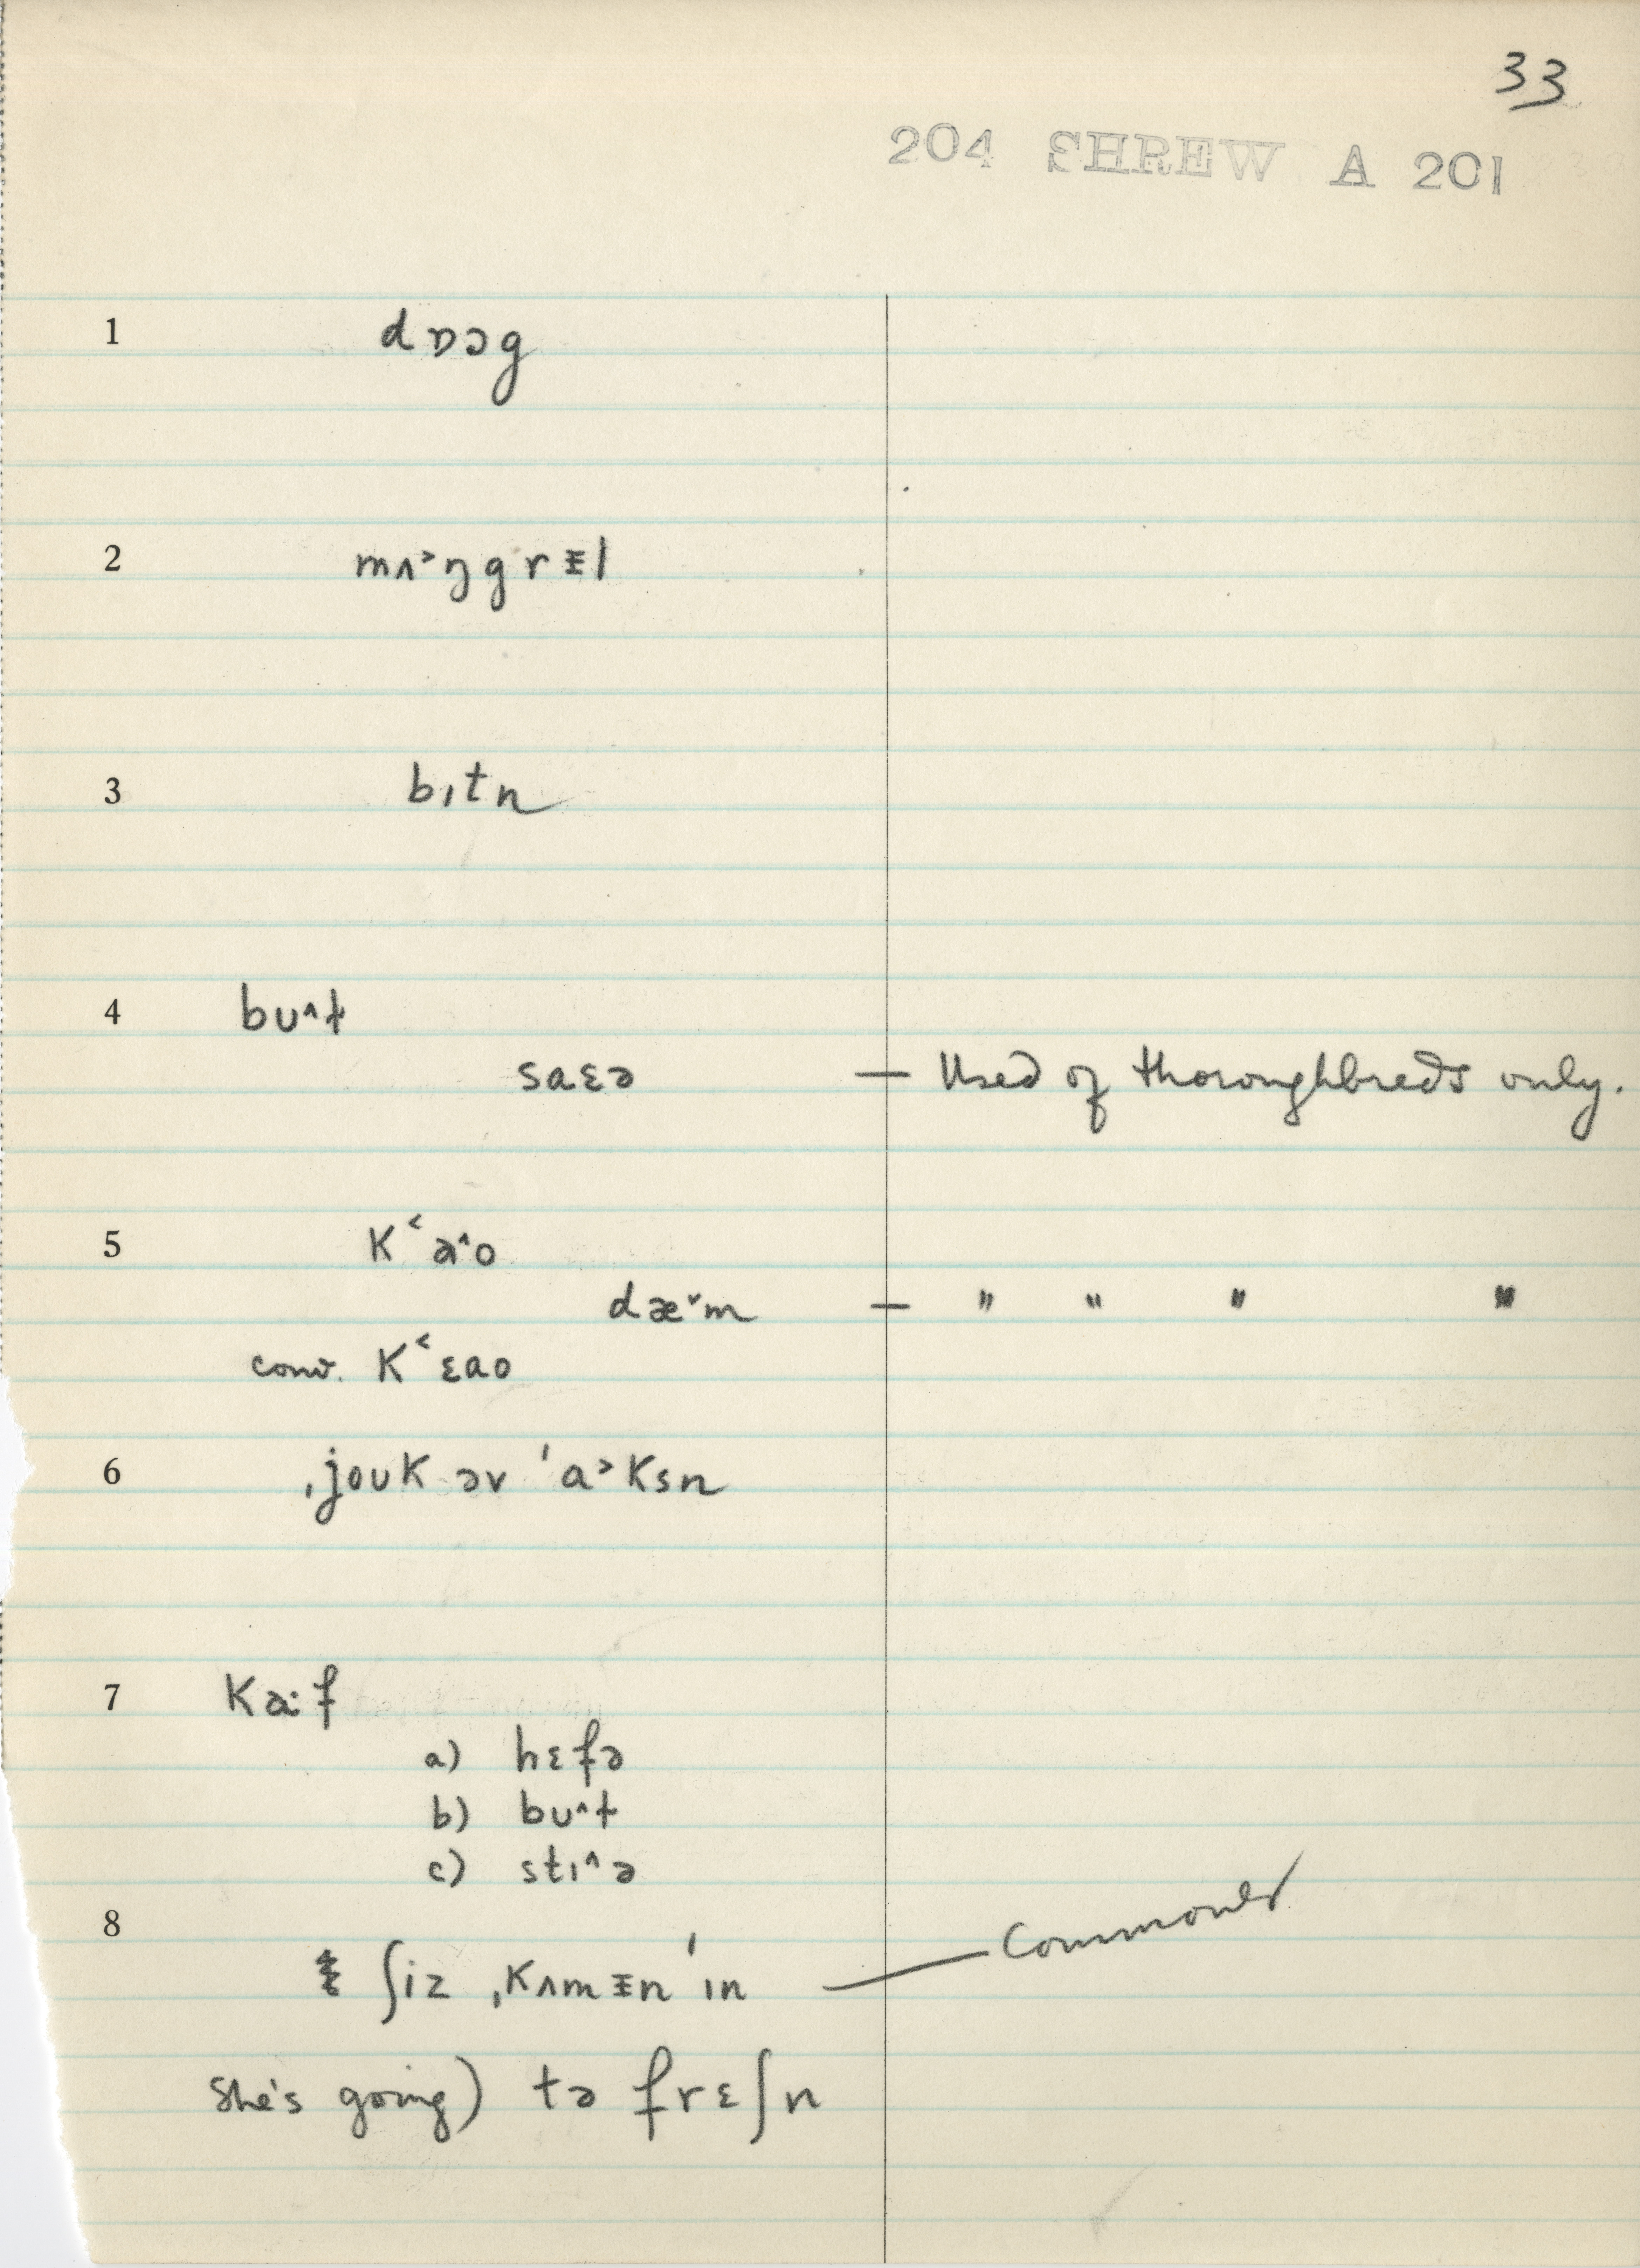 33
204 SHREW A 201
1 dɒɔg
2 mʌ˃ŋgrᵻl
3 bɪtn
4 bʊ˄t
saɛə — Used of thoroughbreds only.
5 K˂a˄o
dæ˅m — " " " "
conv. K˂ɛao
6 ˌjoʊK əv ˈa˃Ksn
7 Ka:f
a) hɛfə
b) bʊ˄t
c) stɪ˄ə
8
ʃiz ˌKʌmᵻn ˈɪn — Commonest
She's going) tə frɛʃn